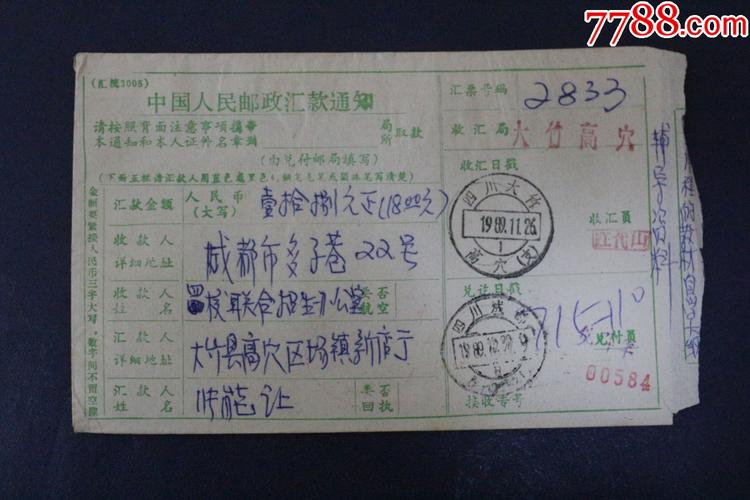 7788.com
(汇统3005)
中国人民邮政汇款通知
请按照背面注意事项携带
本通知和本人证件名章到
局
所
取款
(由兑付邮局填写)
(下面五栏请汇款人用蓝色或黑色钢笔毛笔或圆珠笔写清楚)
汇款金额
人民币
(大写)
壹拾捌元正(18.00元)
收款人
详细地址
成都市多子巷22号
收款人
姓名
四校联合招生办公室
要否
航空
汇款人
详细地址
大竹县高穴区场镇新店子
汇款人
姓名
要否
回执
金额要紧接人民币三字大写,数字间不留空隙
汇票号码
2833
收汇局
大竹高穴
收汇日戳
四川大竹
1989.11.26
1
高穴(支)
收汇员
江代山
兑讫日戳
四川成都
兑付员
00584
接收专号
辅导资料